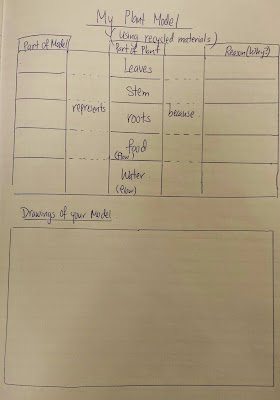 My Plant Model
(Using recycled materials)
Part of Model
Part of Plant
Reason (Why?)
Leaves
Stem
represents
roots
because
food
(flow)
Water
(flow)
Drawings of your Model